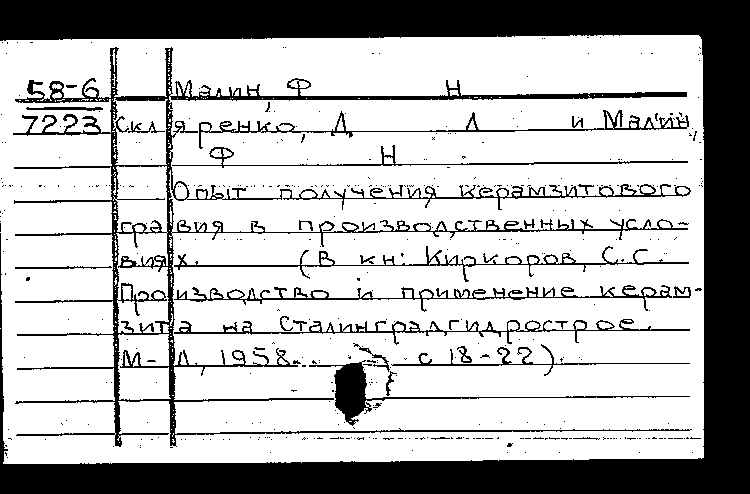 58-6 Малин, Ф Н
7223 Скляренко, Д Л и Малин,
Ф Н
Опыт получения керамзитового
гравия в производственных усло-
виях. (В кн: Киркоров, С.С.
Производство и применение керам-
зита на Сталинградгидрострое.
М-Л., 1958... с 18-22).